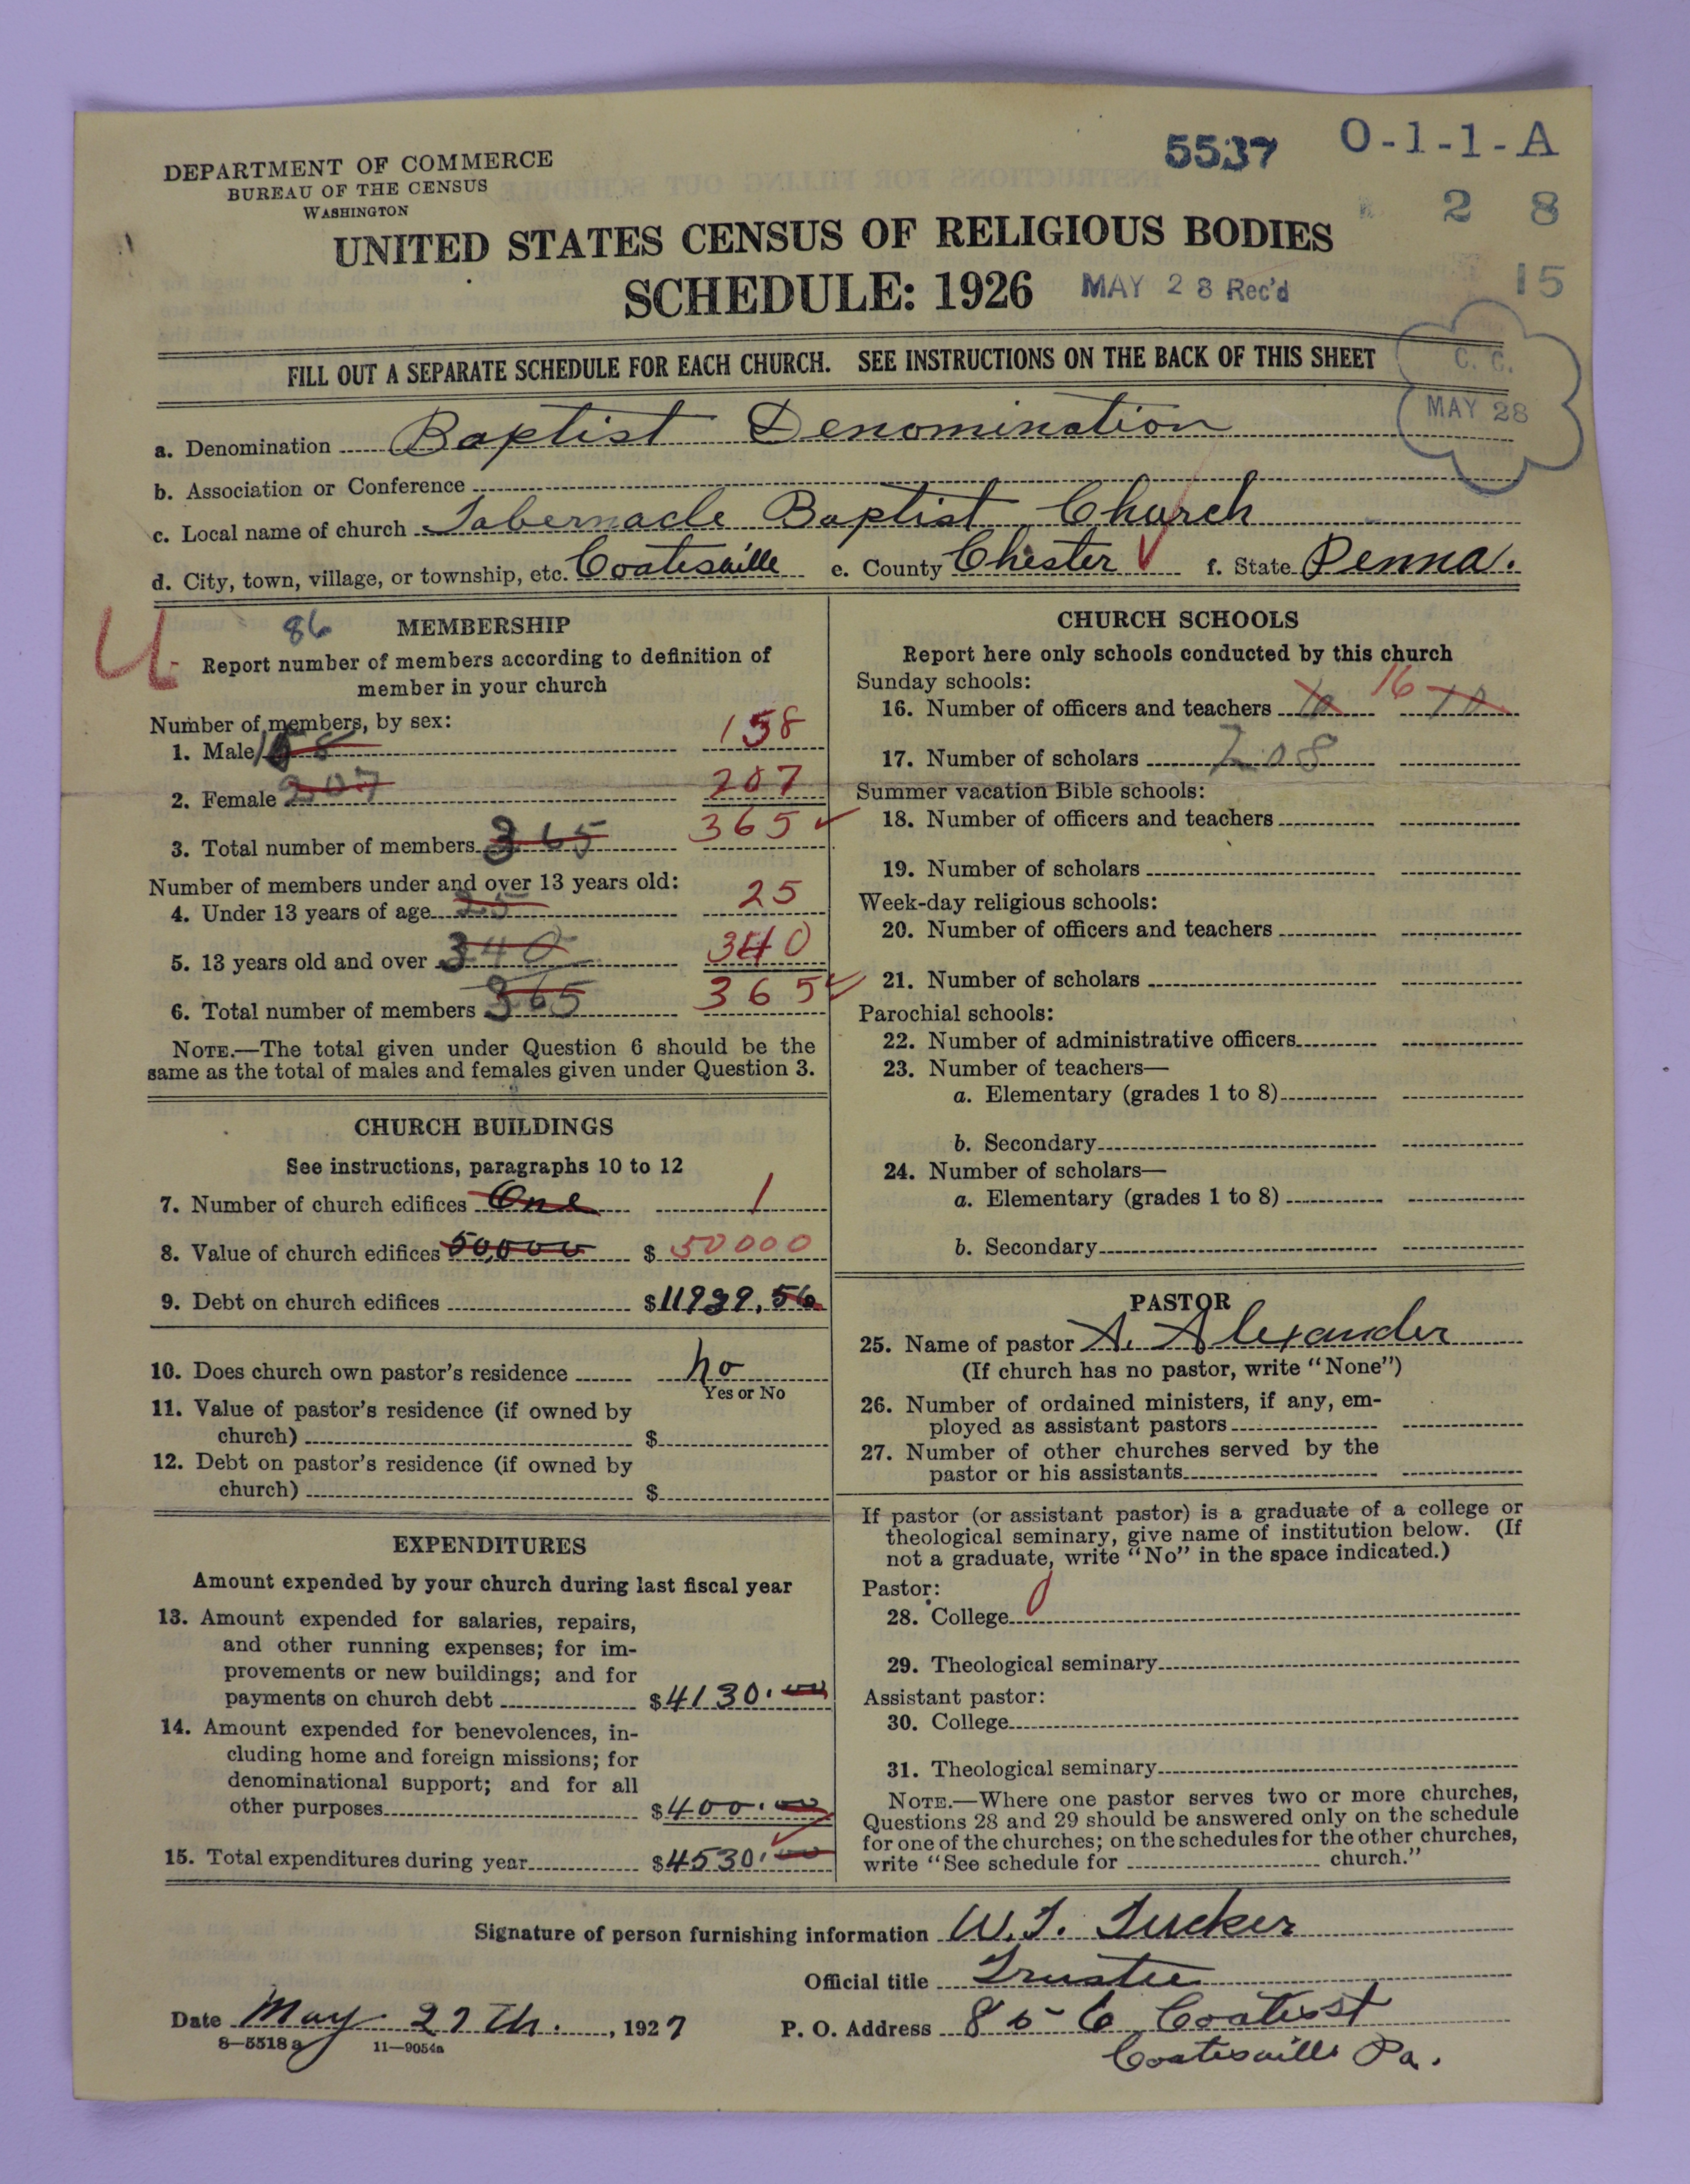 DEPARTMENT OF COMMERCE
BUREAU OF THE CENSUS
WASHINGTON
5537 O-1-1-A
2 8
15
UNITED STATES CENSUS OF RELIGIOUS BODIES
SCHEDULE: 1926 MAY 28 Rec'd
FILL OUT A SEPARATE SCHEDULE FOR EACH CHURCH. SEE INSTRUCTIONS ON THE BACK OF THIS SHEET
C. C.
MAY 28
a. Denomination Baptist Denomination
b. Association or Conference
c. Local name of church Tabernacle Baptist Church
d. City, town, village, or township, etc. Coatesville e. County Chester f. State Penna.
86 MEMBERSHIP
Report number of members according to definition of
member in your church
Number of members, by sex:
1. Male 158 158
2. Female 207 207
3. Total number of members 365 365
Number of members under and over 13 years old:
4. Under 13 years of age 25 25
5. 13 years old and over 340 340
6. Total number of members 365 365
NOTE.—The total given under Question 6 should be the
same as the total of males and females given under Question 3.
CHURCH BUILDINGS
See instructions, paragraphs 10 to 12
7. Number of church edifices One 1
8. Value of church edifices 50,000 $ 50000
9. Debt on church edifices $11939.56
10. Does church own pastor's residence no
Yes or No
11. Value of pastor's residence (if owned by
church) $
12. Debt on pastor's residence (if owned by
church) $
EXPENDITURES
Amount expended by your church during last fiscal year
13. Amount expended for salaries, repairs,
and other running expenses; for im-
provements or new buildings; and for
payments on church debt $4130.00
14. Amount expended for benevolences, in-
cluding home and foreign missions; for
denominational support; and for all
other purposes $400.00
15. Total expenditures during year $4530.00
CHURCH SCHOOLS
Report here only schools conducted by this church
Sunday schools:
16. Number of officers and teachers 16
17. Number of scholars 208
Summer vacation Bible schools:
18. Number of officers and teachers
19. Number of scholars
Week-day religious schools:
20. Number of officers and teachers
21. Number of scholars
Parochial schools:
22. Number of administrative officers
23. Number of teachers—
a. Elementary (grades 1 to 8)
b. Secondary
24. Number of scholars—
a. Elementary (grades 1 to 8)
b. Secondary
PASTOR
25. Name of pastor A. Alexander
(If church has no pastor, write "None")
26. Number of ordained ministers, if any, em-
ployed as assistant pastors
27. Number of other churches served by the
pastor or his assistants
If pastor (or assistant pastor) is a graduate of a college or
theological seminary, give name of institution below. (If
not a graduate, write "No" in the space indicated.)
Pastor:
28. College 0
29. Theological seminary
Assistant pastor:
30. College
31. Theological seminary
NOTE.—Where one pastor serves two or more churches,
Questions 28 and 29 should be answered only on the schedule
for one of the churches; on the schedules for the other churches,
write "See schedule for church."
Signature of person furnishing information W. T. Tucker
Official title Trustee
Date May 27th., 1927 P. O. Address 856 Coates st
8-5518 a 11-9054a
Coatesville Pa.